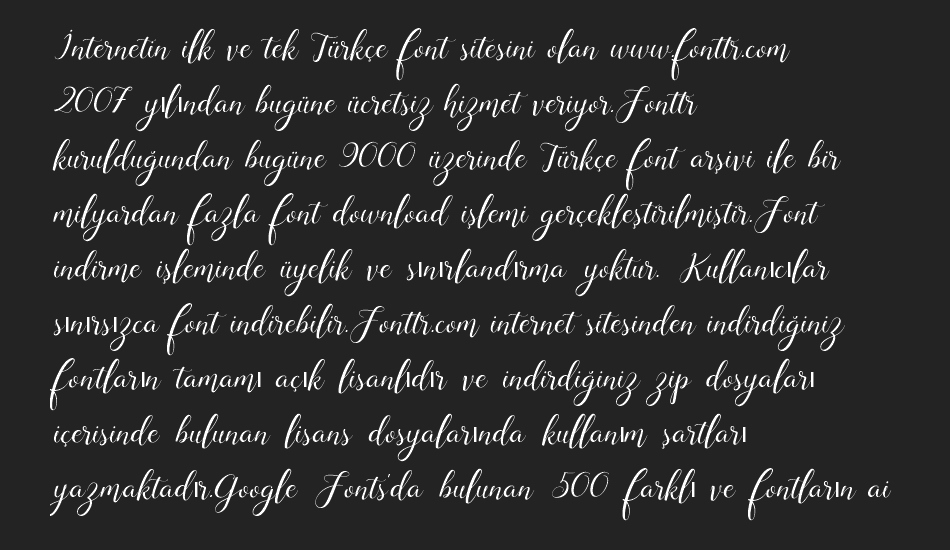 İnternetin ilk ve tek Türkçe font sitesini olan www.fonttr.com
2007 yılından bugüne ücretsiz hizmet veriyor.Fonttr
kurulduğundan bugüne 9000 üzerinde Türkçe font arşivi ile bir
milyardan fazla font download işlemi gerçekleştirilmiştir.Font
indirme işleminde üyelik ve sınırlandırma yoktur. Kullanıcılar
sınırsızca font indirebilir.Fonttr.com internet sitesinden indirdiğiniz
fontların tamamı açık lisanlıdır ve indirdiğiniz zip dosyaları
içerisinde bulunan lisans dosyalarında kullanım şartları
yazmaktadır.Google Fonts'da bulunan 500 farklı ve fontların ai